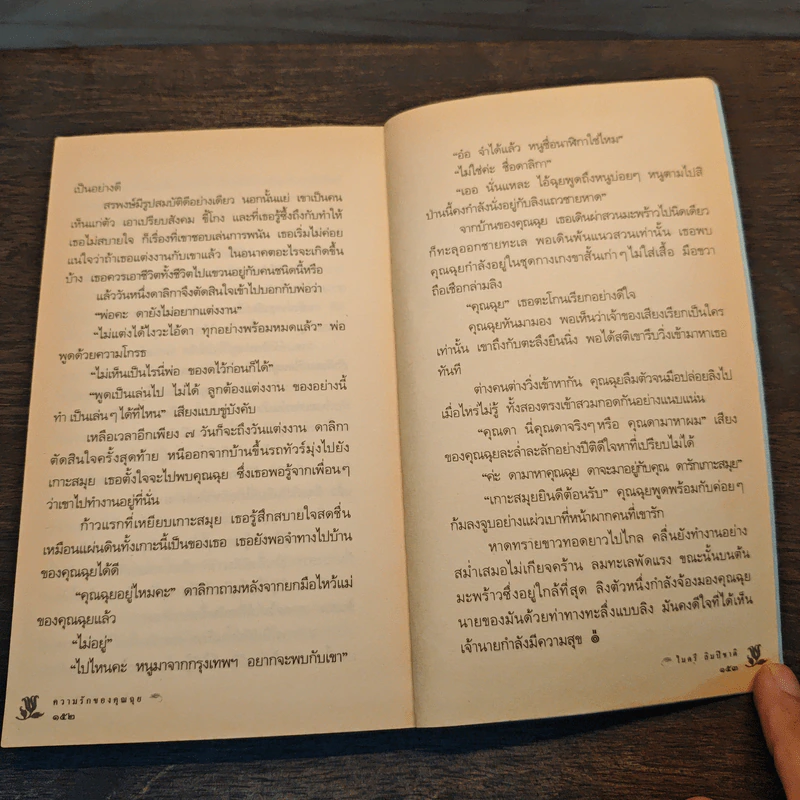 เป็นอย่างดี
สรพงษ์มีรูปสมบัติดีอย่างเดียว นอกนั้นแย่ เขาเป็นคน
เห็นแก่ตัว เอาเปรียบสังคม ขี้โกง และที่เธอรู้ซึ้งถึงกับทำให้
เธอไม่สบายใจ ก็เรื่องที่เขาชอบเล่นการพนัน เธอเริ่มไม่ค่อย
แน่ใจว่าถ้าเธอแต่งงานกับเขาแล้ว ในอนาคตอะไรจะเกิดขึ้น
บ้าง เธอควรเอาชีวิตทั้งชีวิตไปแขวนอยู่กับคนชนิดนี้หรือ
แล้ววันหนึ่งดาลิกาจึงตัดสินใจเข้าไปบอกกับพ่อว่า
“พ่อคะ ดายังไม่อยากแต่งงาน”
“ไม่แต่งได้ไงวะไอ้ดา ทุกอย่างพร้อมหมดแล้ว” พ่อ
พูดด้วยความโกรธ
“ไม่เห็นเป็นไรนี่พ่อ ของดไว้ก่อนก็ได้”
“พูดเป็นเล่นไป ไม่ได้ ลูกต้องแต่งงาน ของอย่างนี้
ทำเป็นเล่นๆ ได้ที่ไหน” เสียงแบบขู่บังคับ
เหลือเวลาอีกเพียง ๗ วันก็จะถึงวันแต่งงาน ดาลิกา
ตัดสินใจครั้งสุดท้าย หนีออกจากบ้านขึ้นรถทัวร์มุ่งไปยัง
เกาะสมุย เธอตั้งใจจะไปพบคุณฉุย ซึ่งเธอพอรู้จากเพื่อนๆ
ว่าเขาไปทำงานอยู่ที่นั่น
ก้าวแรกที่เหยียบเกาะสมุย เธอรู้สึกสบายใจสดชื่น
เหมือนแผ่นดินทั้งเกาะนี้เป็นของเธอ เธอยังพอจำทางไปบ้าน
ของคุณฉุยได้ดี
“คุณฉุยอยู่ไหมคะ” ดาลิกาถามหลังจากยกมือไหว้แม่
ของคุณฉุยแล้ว
“ไม่อยู่”
“ไปไหนคะ หนูมาจากกรุงเทพฯ อยากจะพบกับเขา”
ความรักของคุณฉุย
๑๕๒
“อ๋อ จำได้แล้ว หนูชื่อนาฬิกาใช่ไหม”
“ไม่ใช่ค่ะ ชื่อดาลิกา”
“เออ นั่นแหละ ไอ้ฉุยพูดถึงหนูบ่อยๆ หนูตามไปสิ
ป่านนี้คงกำลังนั่งอยู่กับลิงแถวชายหาด”
จากบ้านของคุณฉุย เธอเดินผ่าสวนมะพร้าวไปนิดเดียว
ก็ทะลุออกชายทะเล พอเดินพ้นแนวสวนเท่านั้น เธอพบ
คุณฉุยกำลังอยู่ในชุดกางเกงขาสั้นเก่าๆ ไม่ใส่เสื้อ มือขวา
ถือเชือกล่ามลิง
“คุณฉุย” เธอตะโกนเรียกอย่างดีใจ
คุณฉุยหันมามอง พอเห็นว่าเจ้าของเสียงเรียกเป็นใคร
เท่านั้น เขาถึงกับตะลึงยืนนิ่ง พอได้สติเขารีบวิ่งเข้ามาหาเธอ
ทันที
ต่างคนต่างวิ่งเข้าหากัน คุณฉุยลืมตัวจนมือปล่อยลิงไป
เมื่อไหร่ไม่รู้ ทั้งสองตรงเข้าสวมกอดกันอย่างแนบแน่น
“คุณดา นี่คุณดาจริงๆ หรือ คุณดามาหาผม” เสียง
ของคุณฉุยละล่ำละลักอย่างปีติดีใจหาที่เปรียบไม่ได้
“ค่ะ ดามาหาคุณฉุย ดาจะมาอยู่กับคุณ ดารักเกาะสมุย”
“เกาะสมุยยินดีต้อนรับ” คุณฉุยพูดพร้อมกับค่อยๆ
ก้มลงจูบอย่างแผ่วเบาที่หน้าผากคนที่เขารัก
หาดทรายขาวทอดยาวไปไกล คลื่นยังทำงานอย่าง
สม่ำเสมอไม่เกียจคร้าน ลมทะเลพัดแรง ขณะนั้นบนต้น
มะพร้าวซึ่งอยู่ใกล้ที่สุด ลิงตัวหนึ่งกำลังจ้องมองคุณฉุย
นายของมันด้วยท่าทางทะลึ่งแบบลิง มันคงดีใจที่ได้เห็น
เจ้านายกำลังมีความสุข
ไมตรี ลิมปิชาติ
๑๕๓